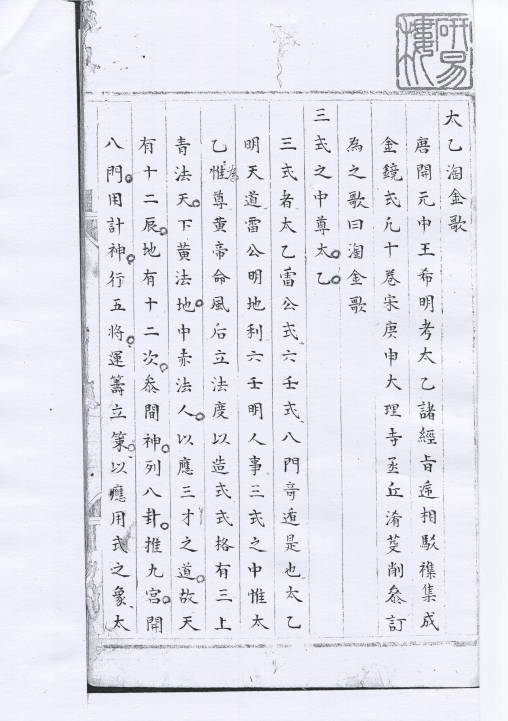 研易樓
太乙淘金歌
唐開元中王希明考太乙諸經旨遞相駁襍集成
金鏡式凡十卷宋庚申大理寺丞丘濬芟削叅訂
為之歌曰淘金歌
三式之中尊太乙
三式者太乙雷公式六壬式八門竒遁是也太乙
明天道雷公明地利六壬明人事三式之中惟太
乙惟尊黄帝命風后立法度以造式式格有三上
青法天下黄法地中赤法人以應三才之道故天
有十二辰地有十二次叅間神列八卦推九宫開
八門用計神行五將運籌立策以應用式之象太